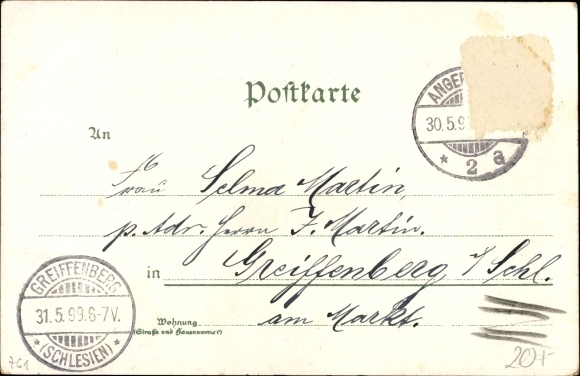 Postkarte
ANGER
30.5.9
* 2 a
An
Frau Selma Martin,
p. Adr. Herrn J. Martin.
in Greiffenberg i/Schl.
am Markt.
Wohnung
(Straße und Hausnummer)
GREIFFENBERG
31.5.99.6-7V.
* (SCHLESIEN) *
761
20.-